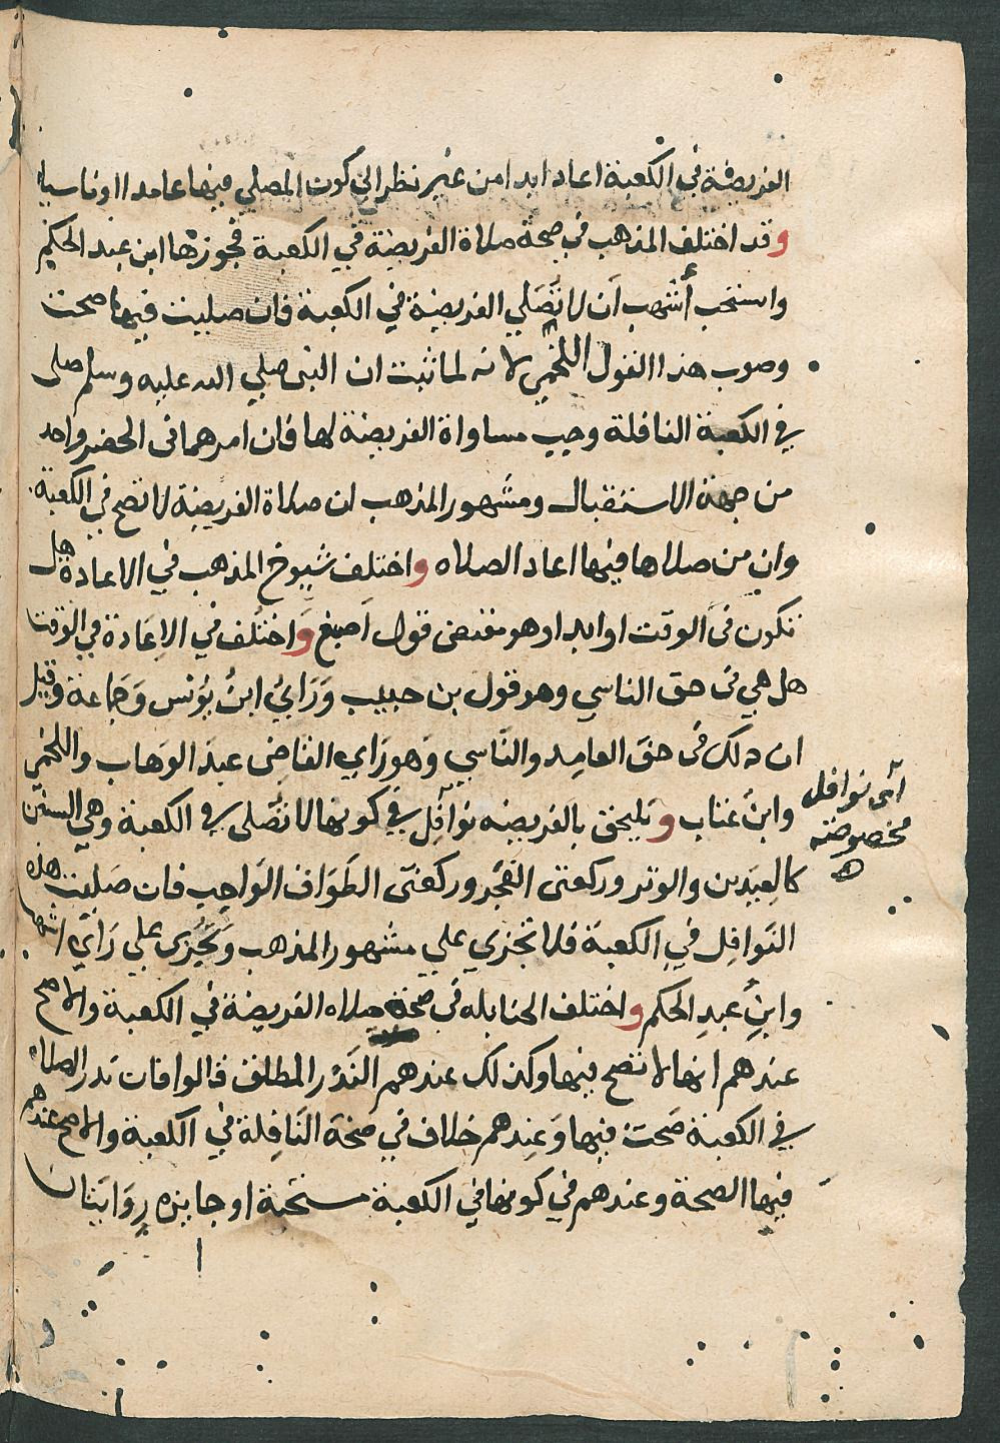 الفريضة في الكعبة اعاد ابدا من غير نظر الي كون المصلي فيها عامدا او ناسيا
وقد اختلف المذهب في صحة صلاة الفريضة في الكعبة فجوزها ابن عبد الحكيم
واستحب أشهب أن لا تصَلي الفريضة في الكعبة فان صليت فيها صحت
وصوب هذا القول اللخمي لانه لما ثبت ان النبي صلي الله عليه وسلم صلي
في الكعبة النافلة وجب مساواة الفريضة لها فان امرهما في الحضر واحد
من جهة الاستقبال ومشهور المذهب ان صلاة الفريضة لا تصح في الكعبة
وان من صلاها فيها اعاد الصلاه واختلف شيوخ المذهب في الاعادة هل
تكون في الوقت او ابدا وهو مقتضى قول اَصبغ وَاختُلف في الاِعَادة في الوقت
هل هي في حق الناسي وهو قول بن حبيب وَرَايُ ابنُ يُونس وَجَاعة وقيل
ان ذلك في حق العامِد والنَاسي وَهو رَاي القاضِى عبدَ الوَهاب واللخمي
وابنُ عتاب وَيلحق بالفريضه نوَافِل في كونها لا تُصَلى في الكعبة وهي السنن
اَى نوافل
مخصوصة
ه
كالعِيدين والوتر وركعتى الفَجْر وركعتَى الطَوَاف الوَاجِب فان صَليت هذه
النَوافِل في الكعبة فلا تجزي علي مشهور المذهب وَتجزى علي رَاي اشهب
وابنِ عبدِ الحكم واختلف الحنابله في صحة صلاه الفريضة في الكعبة والاصح
عندهم انها لا تصح فيها وكذلك عندهم النَذْر المطلق قالوا فان نذر الصلاه
في الكعبة صَحت فيها وَعِندهم خلاف في صحَة النَافِلة في الكعبة والاصح عندهم
فيها الصحة وعندهم في كونها في الكعبة مستحبة او جايزه رِوَايتان